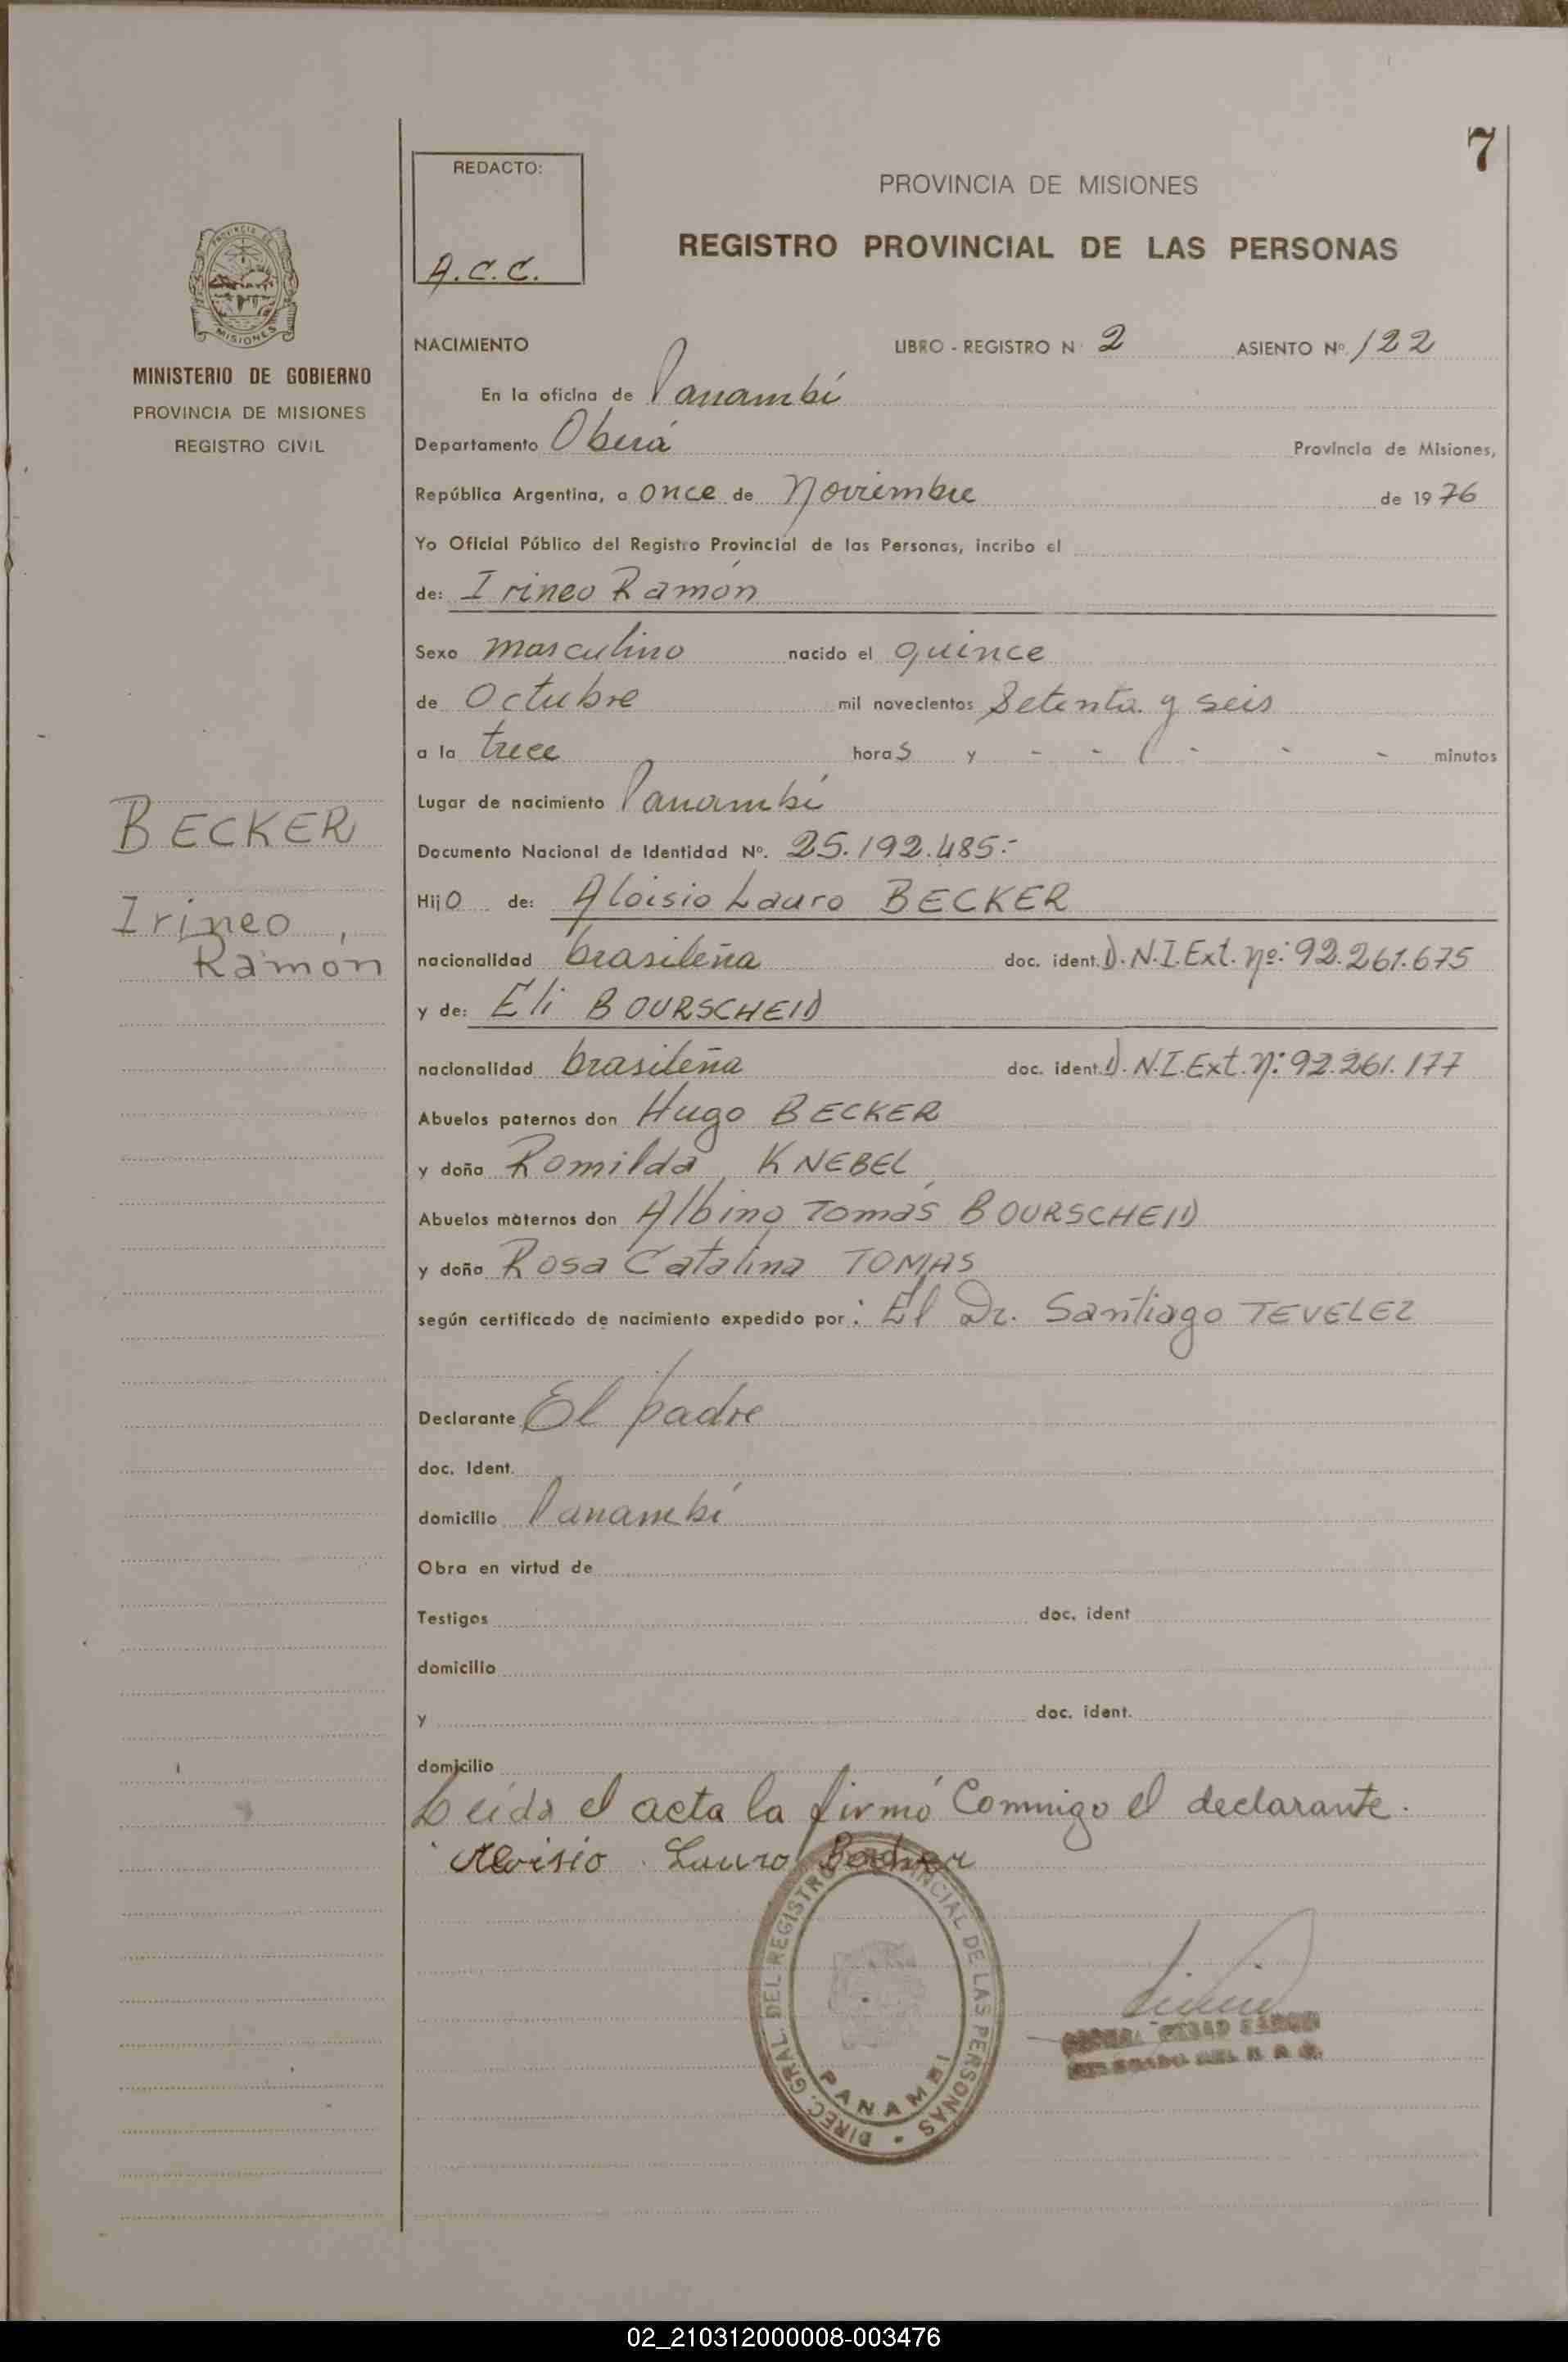 7
REDACTO:
A.C.C.
PROVINCIA DE MISIONES
REGISTRO PROVINCIAL DE LAS PERSONAS
PROVINCIA DE
MISIONES
MINISTERIO DE GOBIERNO
PROVINCIA DE MISIONES
REGISTRO CIVIL
BECKER
Irineo,
Ramón
NACIMIENTO LIBRO - REGISTRO N 2 ASIENTO Nº. 122
En la oficina de Panambí
Departamento Oberá Provincia de Misiones,
República Argentina, a once de Noviembre de 1976
Yo Oficial Público del Registro Provincial de las Personas, incribo el
de: Irineo Ramón
Sexo masculino nacido el quince
de Octubre mil novecientos Setenta y seis
a la trece horas y - - ( - - - minutos
Lugar de nacimiento Panambí
Documento Nacional de Identidad Nº. 25.192.485.-
Hijo de: Aloisio Lauro BECKER
nacionalidad brasileña doc. ident. D.N.I.Ext. nº: 92.261.675
y de: Eli BOURSCHEID
nacionalidad brasileña doc. ident. D.N.I.Ext. n: 92.261.177
Abuelos paternos don Hugo BECKER
y doña Romilda KNEBEL
Abuelos maternos don Albino Tomás BOURSCHEID
y doña Rosa Catalina TOMAS
según certificado de nacimiento expedido por: El Dr. Santiago TEVELEZ
Declarante El padre
doc. Ident.
domicilio Panambí
Obra en virtud de
Testigos doc. ident
domicilio
y doc. ident.
domicilio
Leída el acta la firmó Conmigo el declarante.
Aloisio Lauro Becker
DIREC. GRAL. DEL REGISTRO PROVINCIAL DE LAS PERSONAS
PANAMBI
02_210312000008-003476